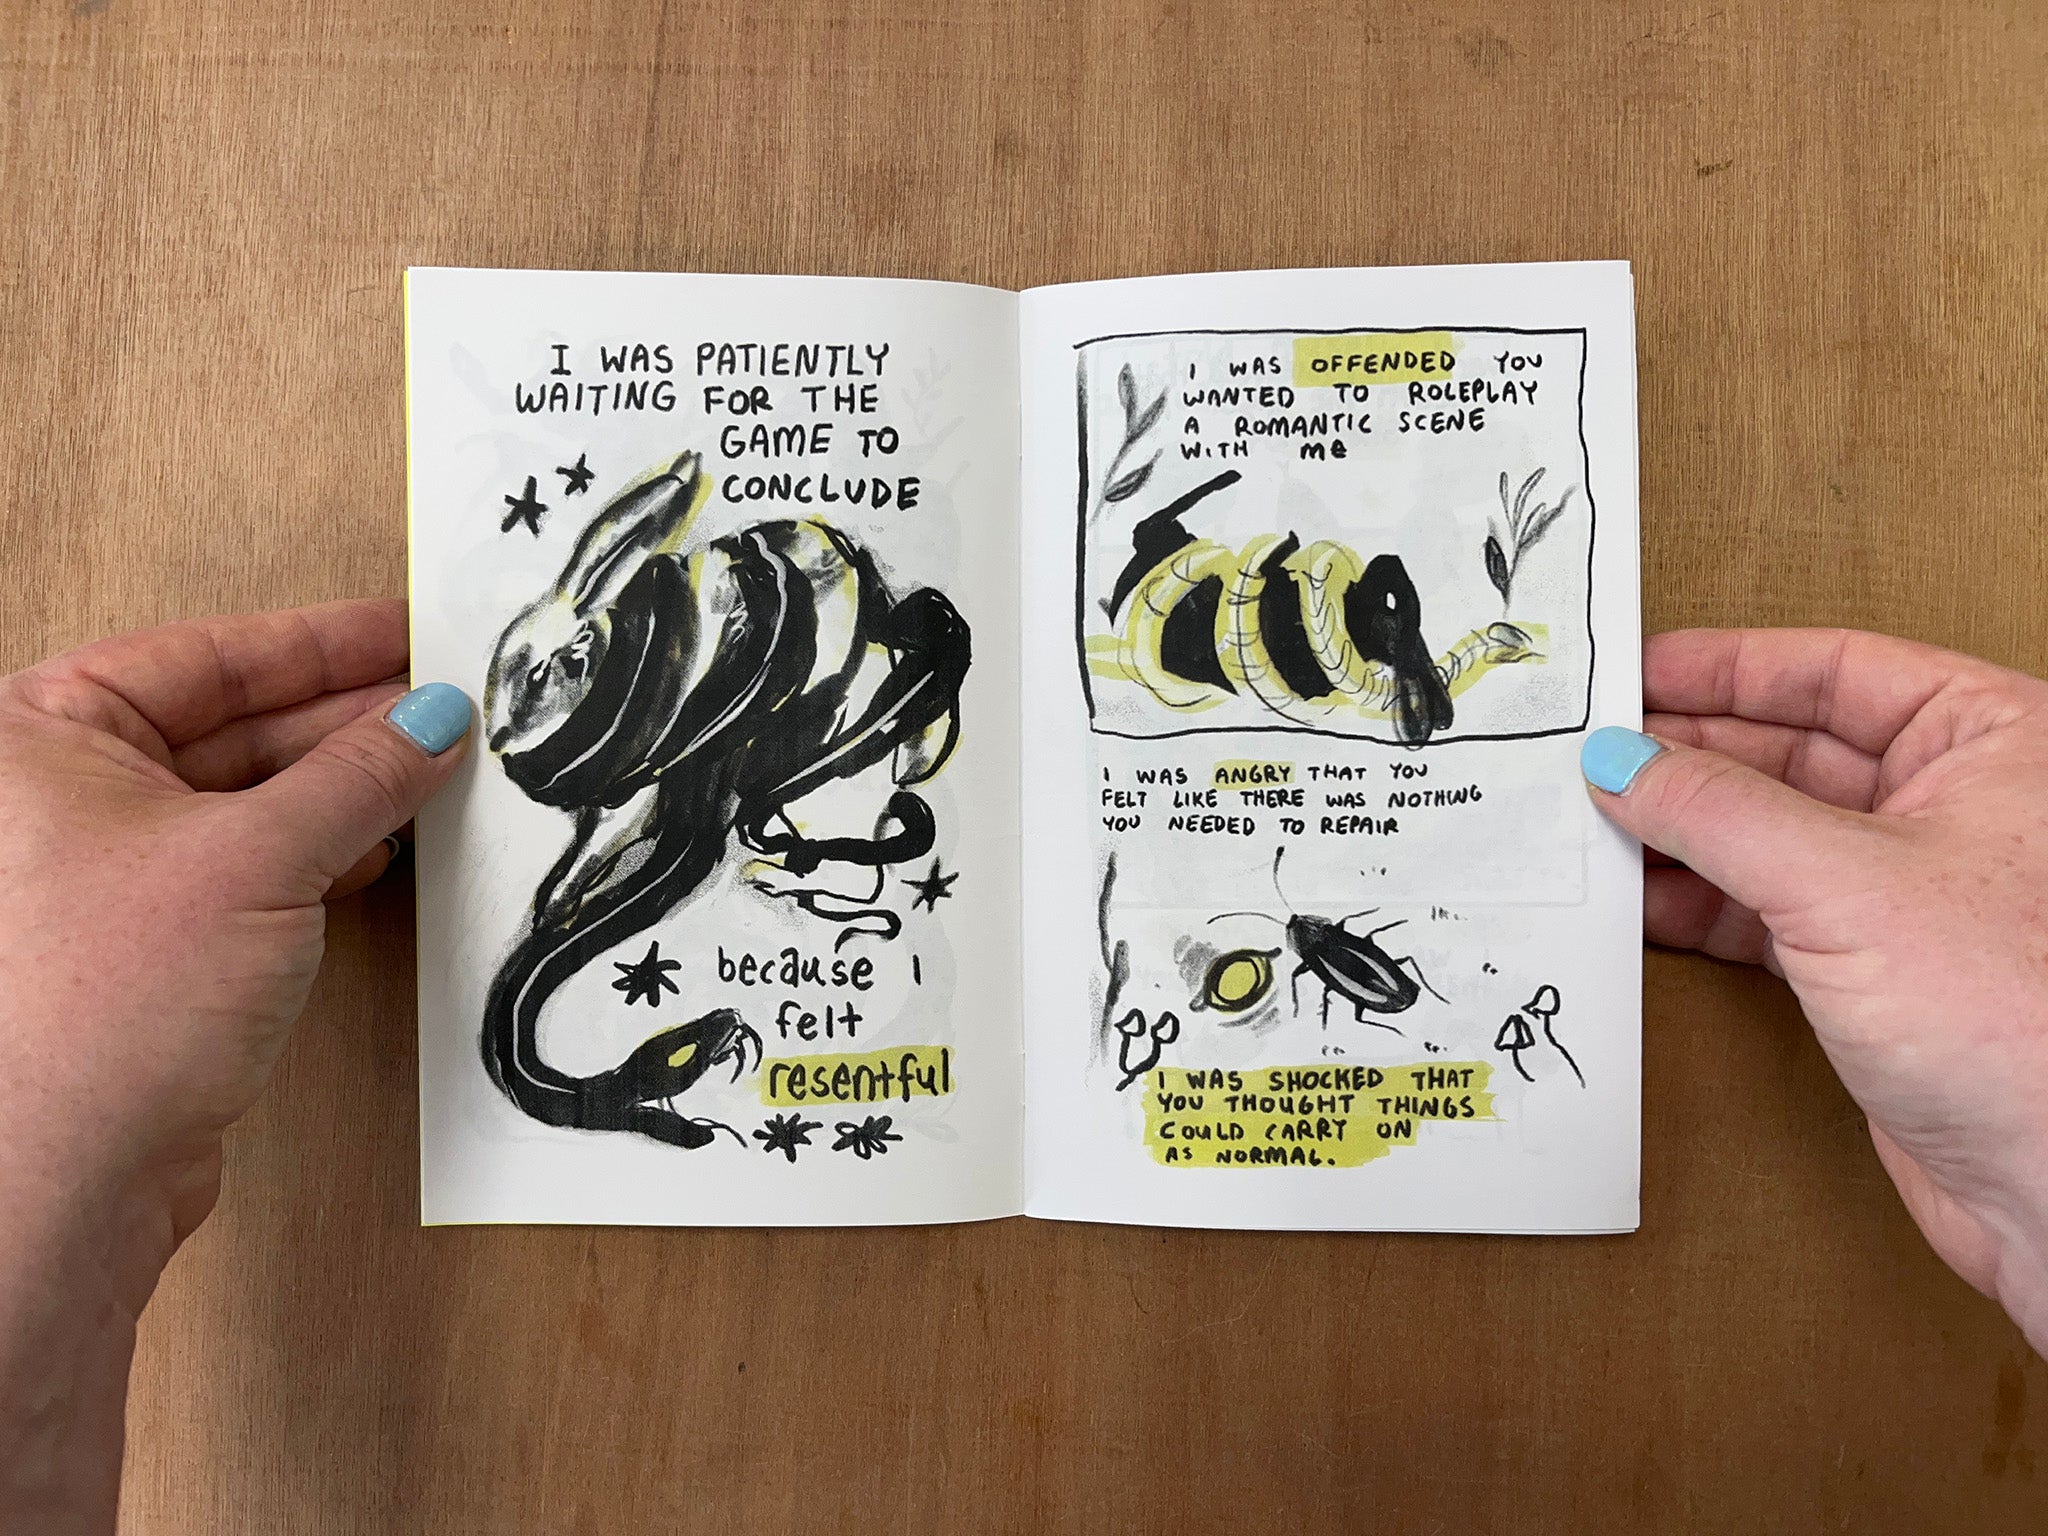 I WAS PATIENTLY
WAITING FOR THE
GAME TO
CONCLUDE
because I
felt
resentful
I WAS OFFENDED YOU
WANTED TO ROLEPLAY
A ROMANTIC SCENE
WITH ME
I WAS ANGRY THAT YOU
FELT LIKE THERE WAS NOTHING
YOU NEEDED TO REPAIR
I WAS SHOCKED THAT
YOU THOUGHT THINGS
COULD CARRY ON
AS NORMAL.